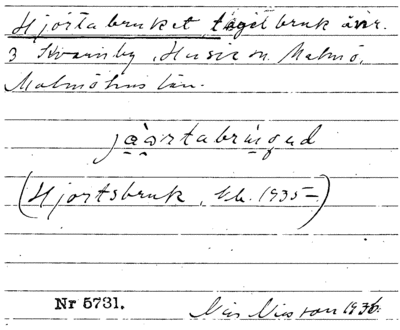 Hjortabruket, tegelbruk å nr.
3 Kvarnby, Husie sn. Malmö,
Malmöhus län.
(Hjortsbruk, Ek. 1935–)
Nr 5731.
Nils Nilsson 1936.